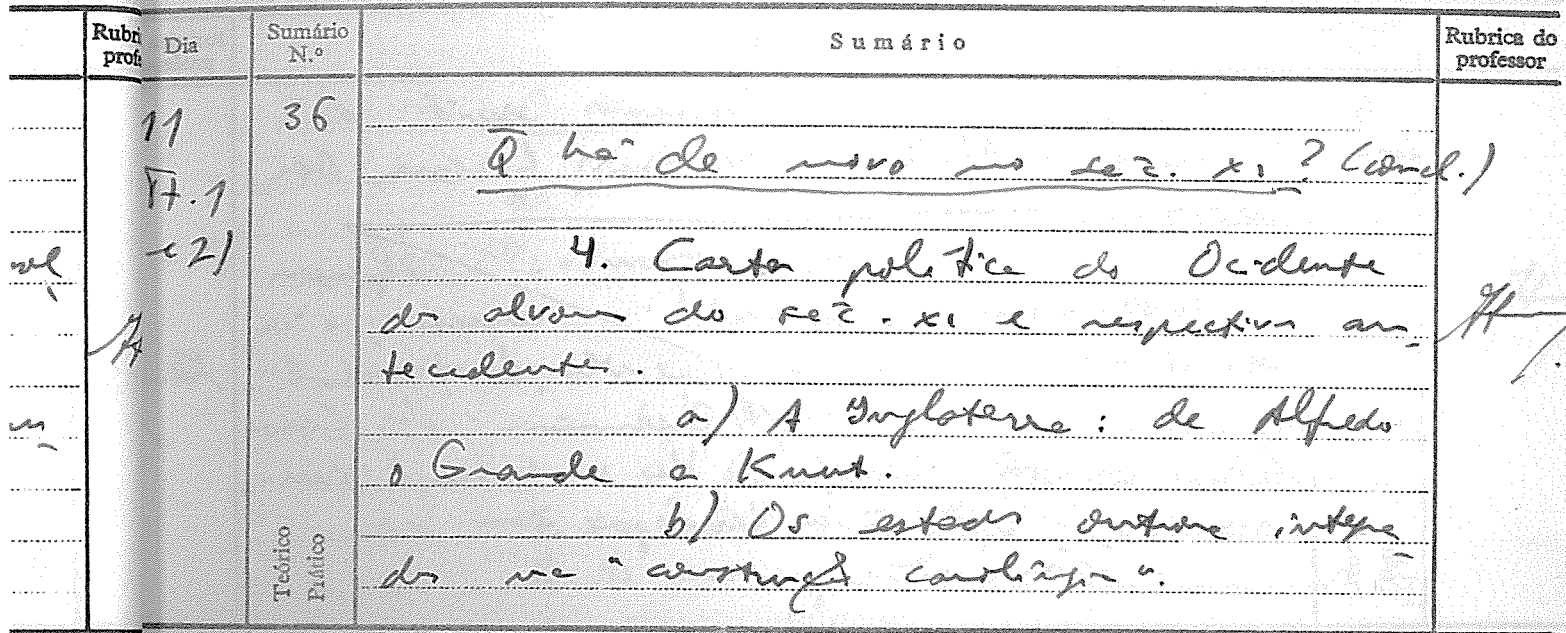 Rubr
prof
Dia
Sumário
N.º
Sumário
Rubrica do
professor
11
36
Q̄ há de novo no séc. XI? (concl.)
4. Carta política do Ocidente
dos alvores do séc. XI e respectivos an-
tecedentes.
a) A Inglaterra: de Alfredo
o Grande a Knut.
b) Os estados outrora integra-
dos na "construção carolíngia".
Teórico
Prático